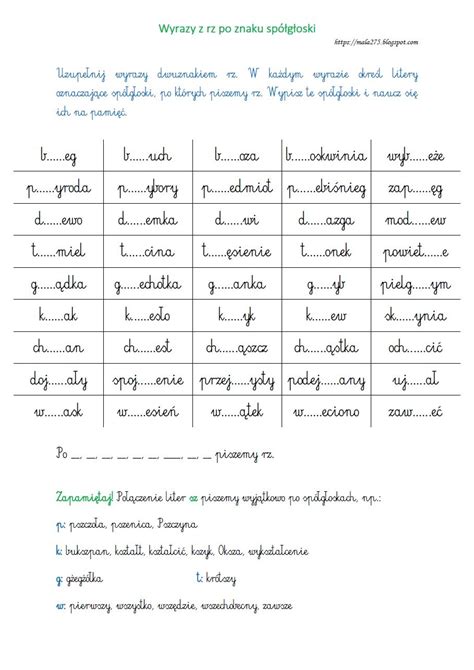 Wyrazy z rz po znaku spółgłoski
https://mala275.blogspot.com
Uzupełnij wyrazy dwuznakiem rz. W każdym wyrazie określ litery
oznaczające spółgłoski, po których piszemy rz. Wypisz te spółgłoski i naucz się
ich na pamięć.
b......eg b......uch b......oza b......oskwinia wyb......eże
p......yroda p......ybory p......edmiot p......ebiśnieg zap......ęg
d......ewo d......emka d......wi d......azga mod......ew
t......miel t......cina t......ęsienie t......onek powiet......e
g......ądka g......echotka g......anka g......yb pielg......ym
k......ak k......esło k......yk k......ew sk......ynia
ch......an ch......est ch......ąszcz ch......ąstka och......cić
doj......ały spoj......enie przej......ysty podej......any uj......ał
w......ask w......esień w......ątek w......eciono zaw......eć
Po __, __, __, __, __, __, ___, __, __ piszemy rz.
Zapamiętaj! Połączenie liter sz piszemy wyjątkowo po spółgłoskach, np.:
p: pszczoła, pszenica, Pszczyna
k: bukszpan, kształt, kształcić, kszyk, Oksza, wykształcenie
g: gżegżółka t: krótszy
w: pierwszy, wszystko, wszędzie, wszechobecny, zawsze